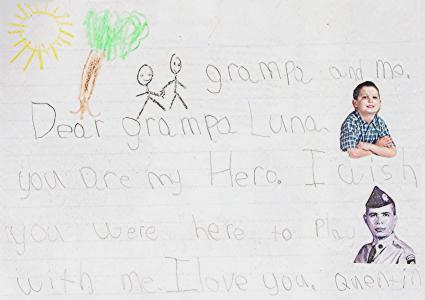 grampa and me.
Dear grampa Luna.
you are my Hero. I wish
you were here to Play
with me. I love you. Quentin